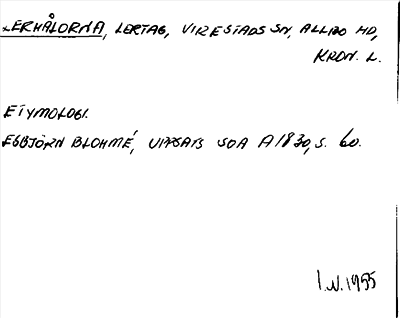 LERHÅLORNA, LERTAG, VIRESTADS SN, ALLBO HD,
KRON. L.
ETYMOLOGI.
ESBJÖRN BLOHMÉ, UPPSATS SOA A1830, S. 60.
1955